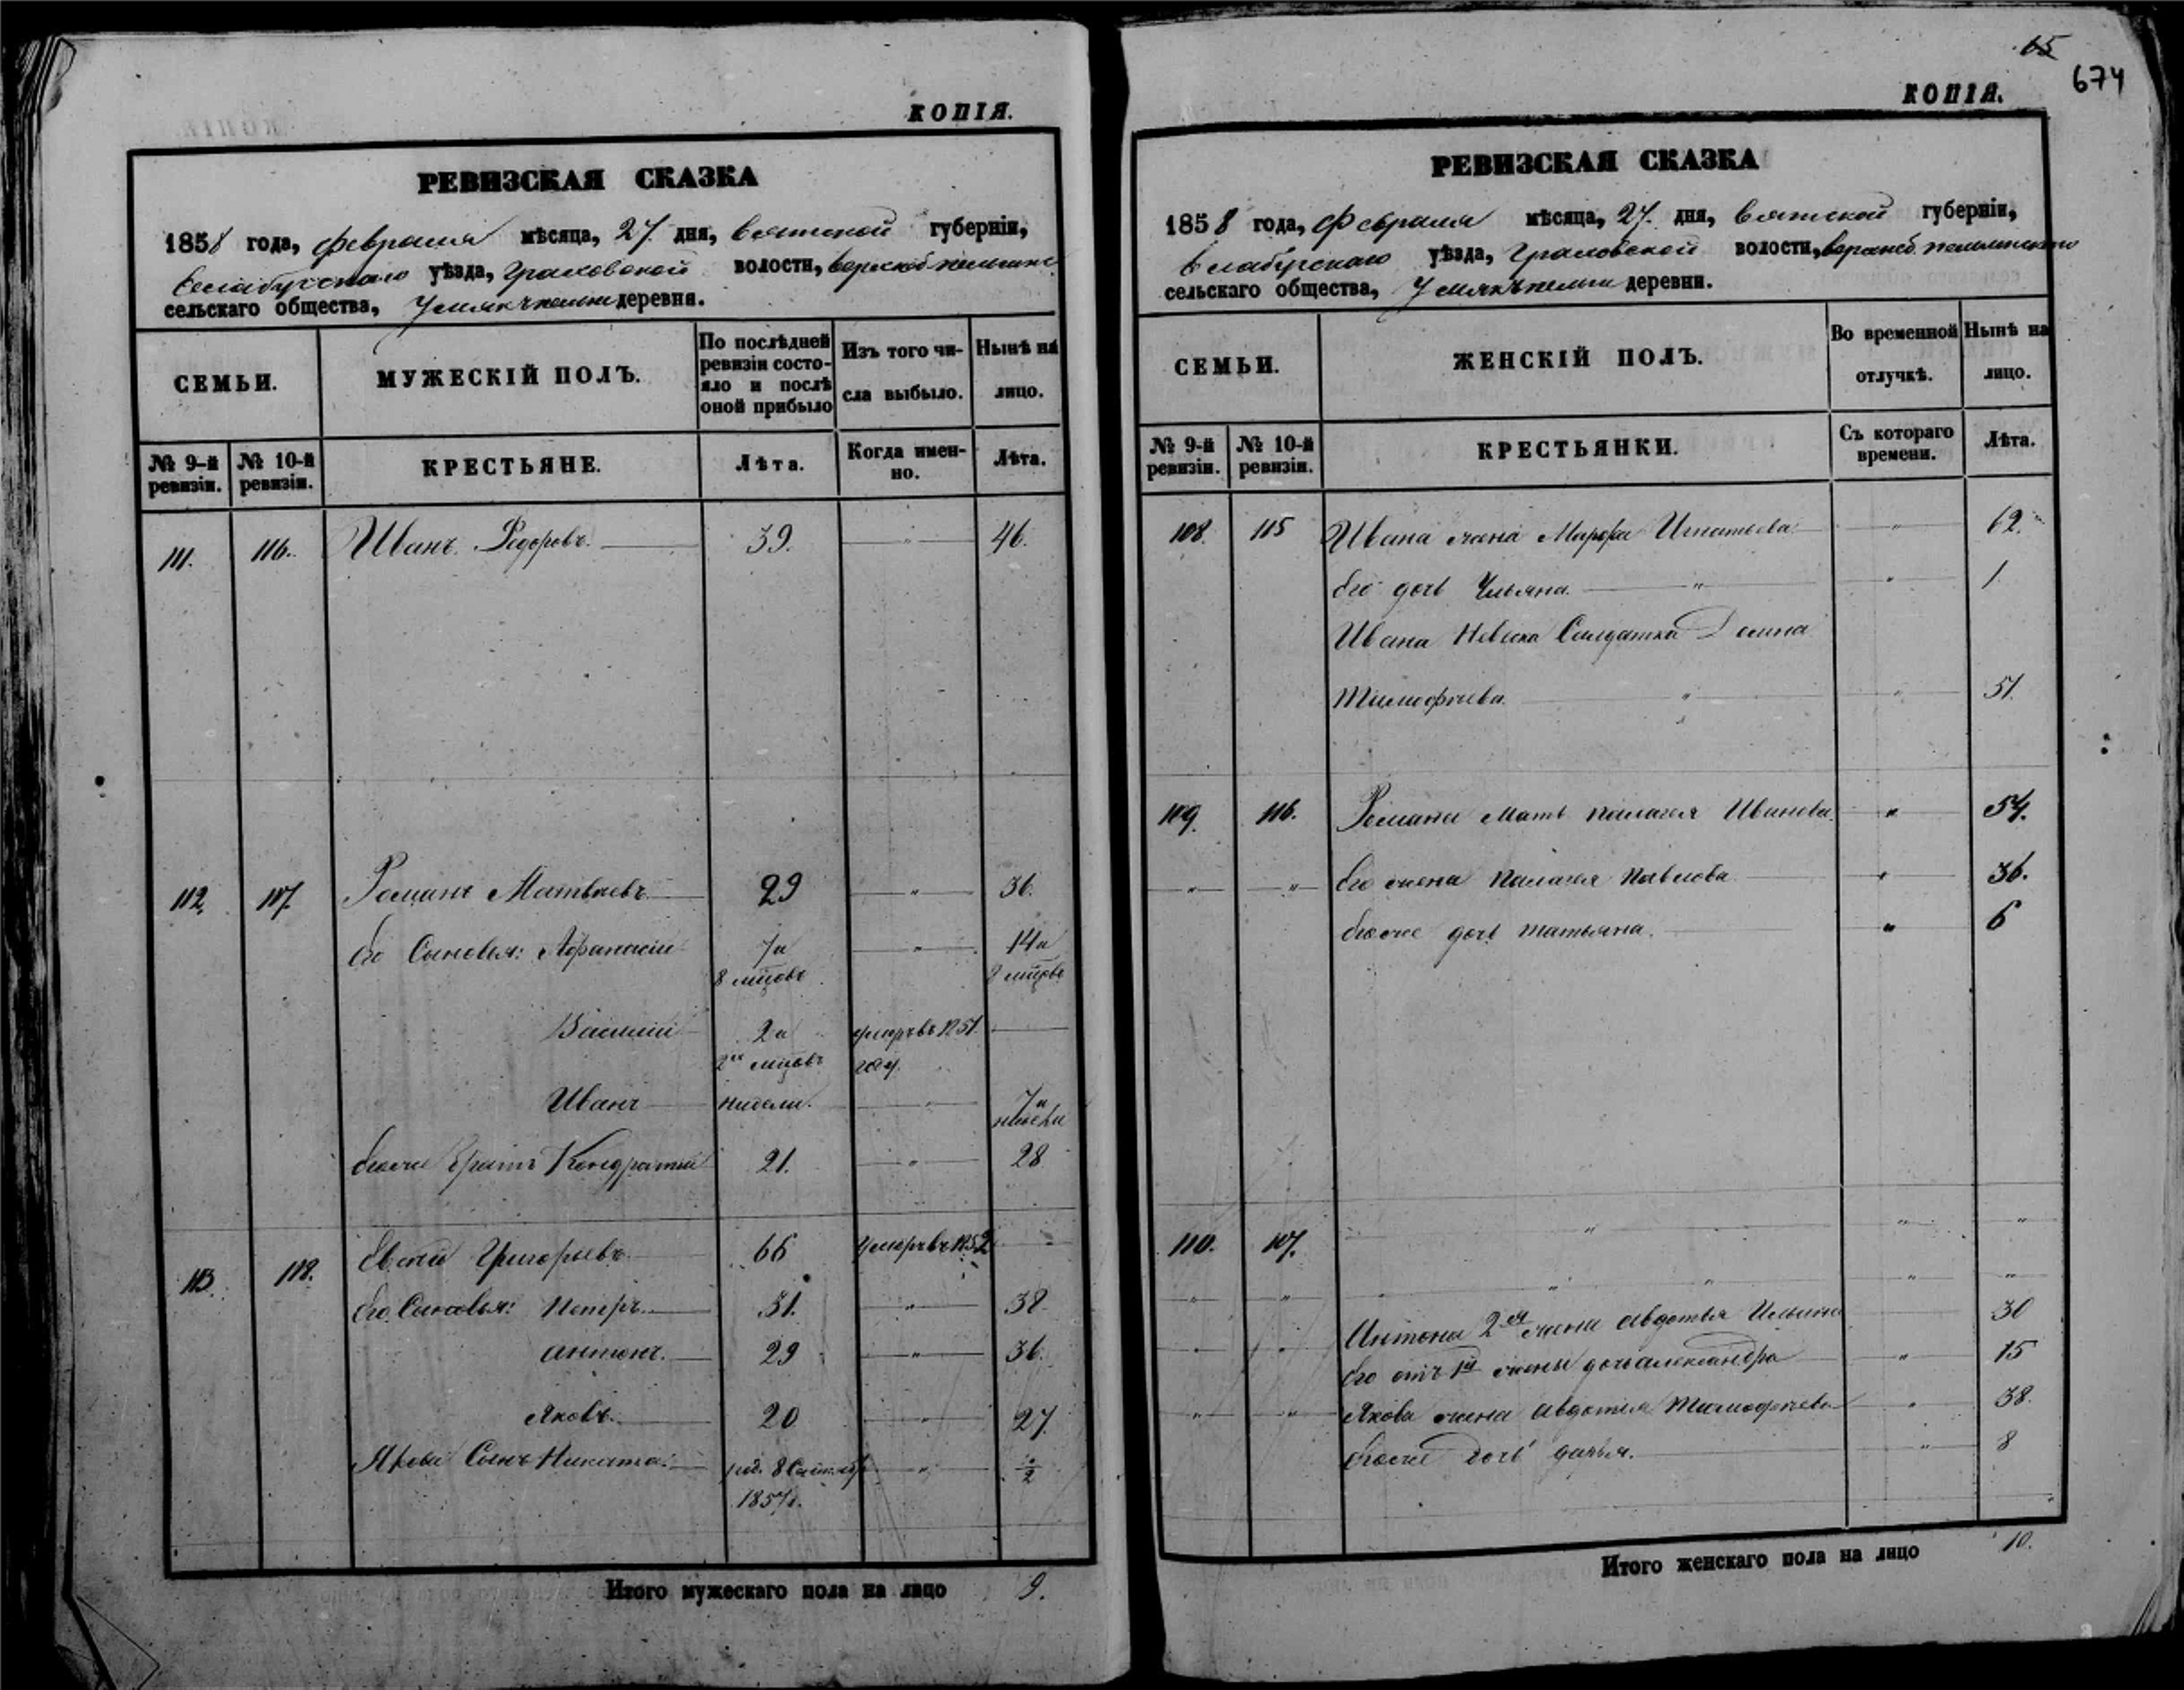 КОПІЯ.
РЕВИЗСКАЯ СКАЗКА
1858 года, февраля мѣсяца, 27. дня, Вятской губерніи,
Елабугскаго уѣзда, Граховской волости,
сельскаго общества, деревни.
СЕМЬИ.
МУЖЕСКІЙ ПОЛЪ.
По послѣдней ревизіи состояло и послѣ оной прибыло
Изъ того числа выбыло.
Нынѣ на лицо.
№ 9-й ревизіи.
№ 10-й ревизіи.
КРЕСТЬЯНЕ.
Лѣта.
Когда именно.
Лѣта.
111. 116. Иванъ Ѳедоровъ. 39. " 46.
112. 117. Романъ Матвѣевъ 29 " 36.
Его Сыновья: Афанасій 7и " 14и
8 мцовъ 8 мцовъ
Василій 2и умеръ въ 1851
2хъ мцовъ году.
Иванъ нидели. " 7и
Егоже Братъ Кондратій 21. " 28
113. 118. Григорьевъ 66 Умеръ въ 1852
Его Сыновья: Петръ. 31. " 38
Антонъ. 29 " 36.
Яковъ. 20 " 27.
Якова Сынъ Никита. род. 8 " ½
1857г.
Итого мужескаго пола на лицо 9.
65
674
КОПІЯ.
РЕВИЗСКАЯ СКАЗКА
1858 года, Февраля мѣсяца, 27. дня, Вятской губерніи,
Елабугскаго уѣзда, Граховской волости,
сельскаго общества, деревни.
СЕМЬИ.
ЖЕНСКІЙ ПОЛЪ.
Во временной отлучкѣ.
Нынѣ на лицо.
№ 9-й ревизіи.
№ 10-й ревизіи.
КРЕСТЬЯНКИ.
Съ котораго времени.
Лѣта.
108. 115 Ивана жена Марфа Игнатьева " 62.
Его дочь Ульяна. " " 1.
Ивана Невѣска Салдатка Домна
Тимофѣева. " " 51.
109. 116. Романа Мать Палагея Иванова. " 54.
" " Его жена Палагея Павлова " 36.
Егоже дочь Татьяна. " 6
110. 107. " " "
" " " " " "
Антона 2ая жена Авдотья Ильина 30
Его отъ 1й жены дочь Александра " 15
" " Якова жена Авдотья Тимофѣева " 38.
Егоже дочь Дарья. " 8
Итого женскаго пола на лицо 10.